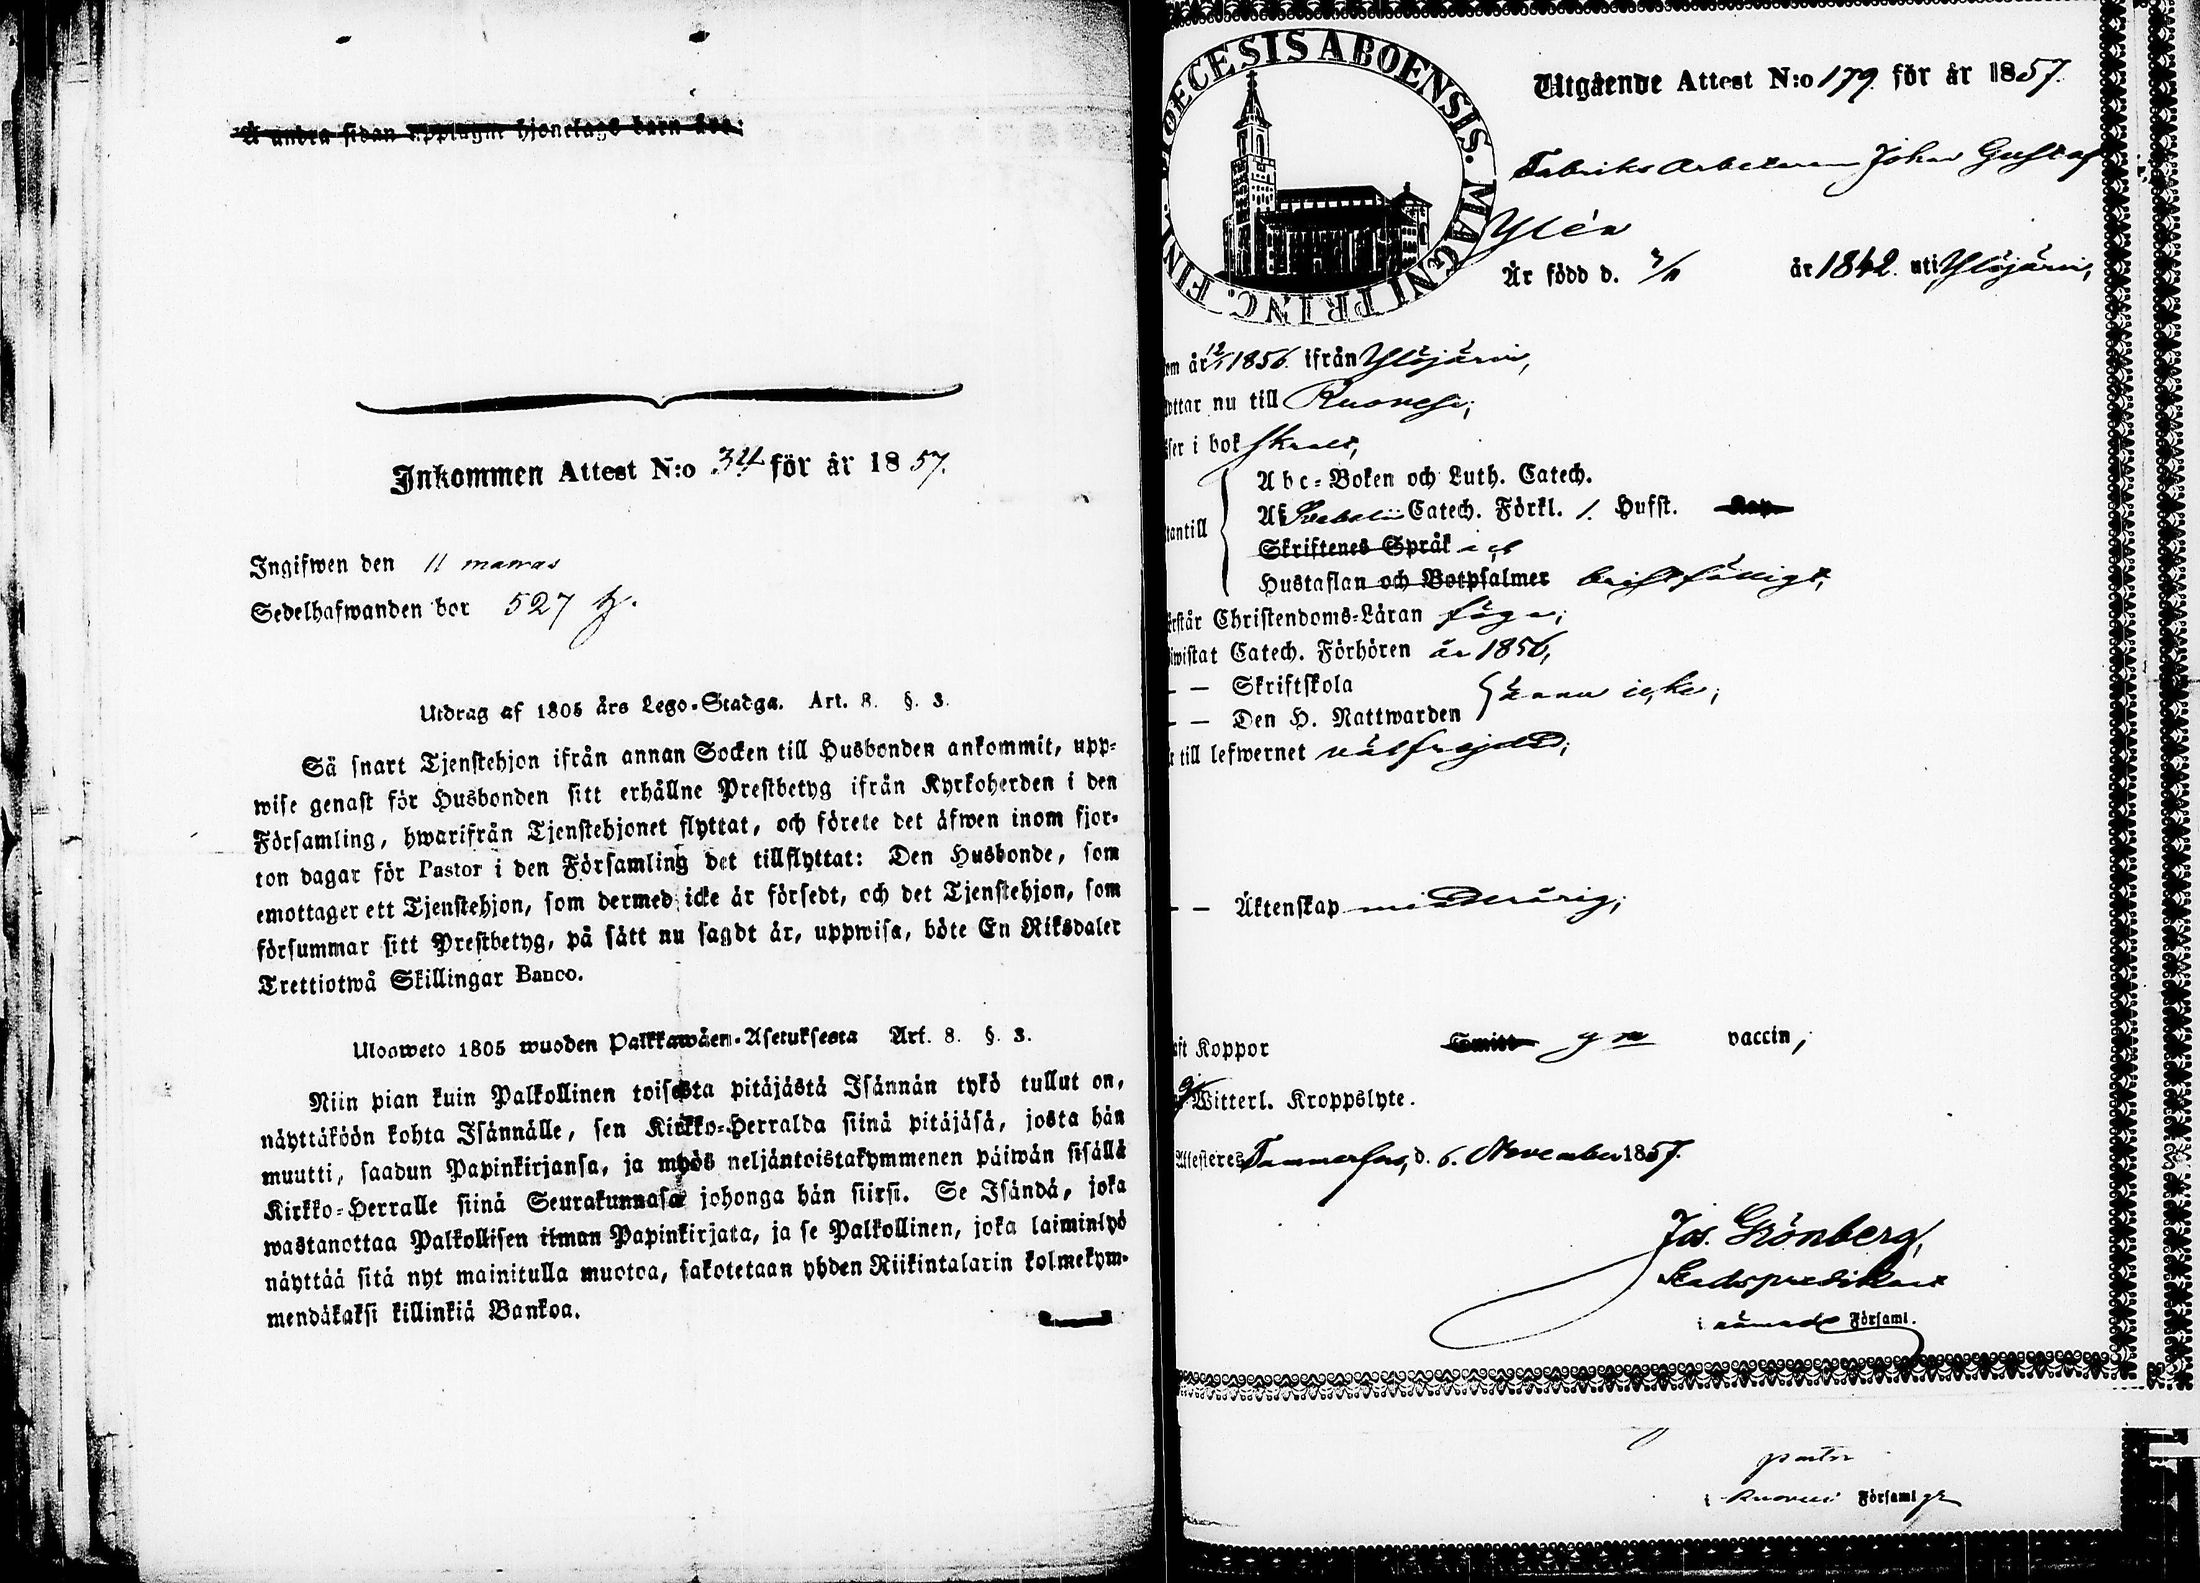 Å andra sidan upptagne hjonelags barn äro:
Inkommen Attest N:o 34 för år 1857.
Ingifwen den 11
Sedelhafwanden bor 527
Utdrag af 1805 års Lego-Stadga. Art. 8. §. 3.
Så snart Tjenstehjon ifrån annan Socken till Husbonden ankommit, upp-
wise genast för Husbonden sitt erhållne Prestbetyg ifrån Kyrkoherden i den
Församling, hwarifrån Tjenstehjonet flyttat, och förete det äfwen inom fjor-
ton dagar för Pastor i den Församling det tillflyttat: Den Husbonde, som
emottager ett Tjenstehjon, som dermed icke är försedt, och det Tjenstehjon, som
försummar sitt Prestbetyg, på sätt nu sagdt är, uppwisa, böte En Riksdaler
Trettiotwå Skillingar Banco.
Ulosweto 1805 wuoden Palkkawäen-Asetuksesta Art. 8. §. 3.
Niin pian kuin Palkollinen toisesta pitäjästä Isännän tykö tullut on,
näyttäköön kohta Isännälle, sen Kirkko-Herralda siinä pitäjäsä, josta hän
muutti, saadun Papinkirjansa, ja myös neljäntoistakymmenen päiwän sisällä
Kirkko-Herralle siinä Seurakunnasa johonga hän siirsi. Se Isändä, joka
wastanottaa Palkollisen ilman Papinkirjata, ja se Palkollinen, joka laiminlyö
näyttää sitä nyt mainitulla muotoa, sakotetaan yhden Riikintalarin kolmekym-
mendäkaksi killinkiä Bankoa.
DIOECESIS ABOENSIS. MAGNI PRINC. FINL.
Utgående Attest N:o 179 för år 1857.
Fabriks Arbetaren Johan Gustaf
Ylén
Är född d. år 1842 uti Ylöjärvi,
om år 1856 ifrån Ylöjärvi,
yttar nu till Ruovesi;
ser i bok
Abc-Boken och Luth. Catech.
Af Svebelii Catech. Förkl. 1. Hufst. Kap.
tantill
Skriftenes Språk
Hustaflan och Botpsalmer bristfälligt,
rstår Christendoms-Läran föga;
iwistat Catech. Förhören år 1856,
- - Skriftskola
ännu icke;
- - Den H. Nattwarden
till lefwernet välfrejdad;
- - Äktenskap minderårig;
aft Koppor Smitt gm vaccin,
Witterl. Kroppslyte.
Attesteres Tammerfors, d. 6. November 1857.
Jos. Grönberg,
Stadspredikant
i nämnde Församl.
pastor
i Ruovesi Församl